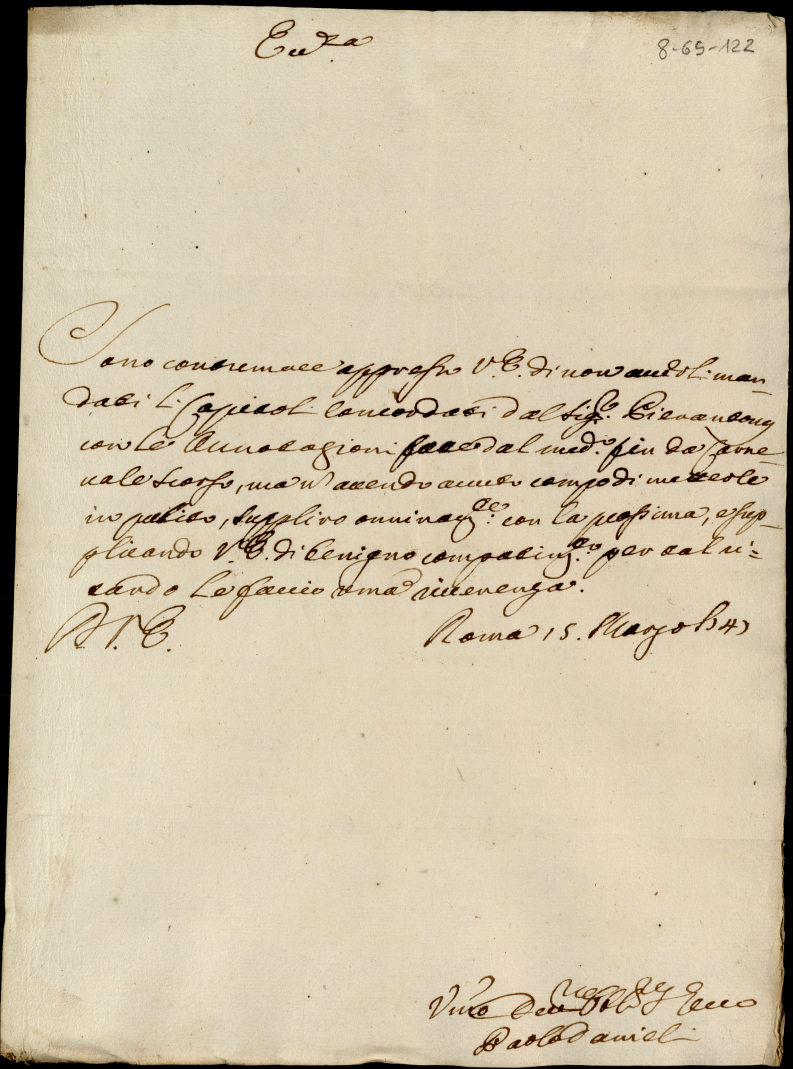 Ecc.za
8-69-122
Sono contumace appresso V.E. di non averli man-
dati li Capitoli concordati dal Sig.re Pierantonj
con le Annotazioni fatte dal med.o fin da Carne-
vale scorso, ma n avendo auuto tempo di metterle
in pulito, supplirò onninam.te con la prossima, e sup-
plicando V.E. di benigno compatim.to per tal ri-
tardo le faccio umã riverenza.
D. V. E.
Roma 15. Marzo 1743
Um̃o Dev.mo Obb.mo Serv.re
Paolo Danieli